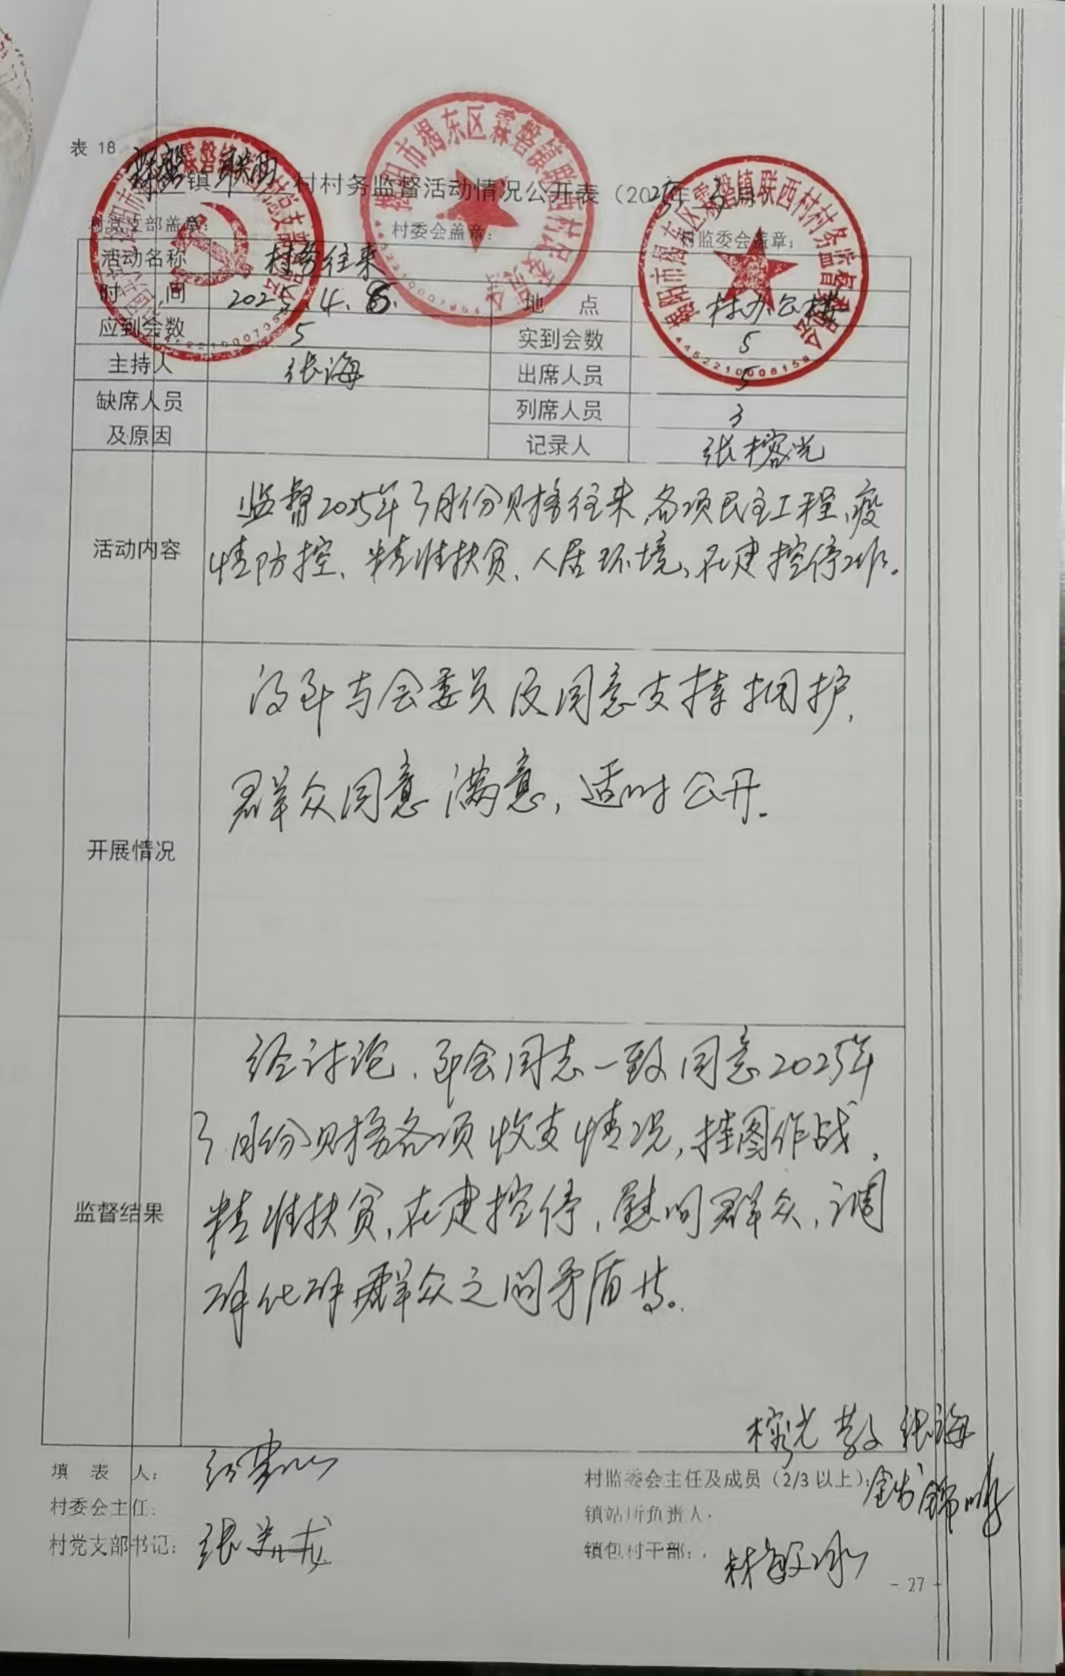 表 18
霖磐镇联西村村务监督活动情况公开表（2025年3月）
村党支部盖章： 村委会盖章： 村监委会盖章：
活动名称 村务往来
时 间 2025.4.8. 地 点 村办公楼
应到会数 5 实到会数 5
主持人 张海 出席人员 5
缺席人员及原因 列席人员 3
记录人 张榕光
活动内容
监督2025年3月份财务往来，各项民主工程，疫
情防控、精准扶贫、人居环境、在建控停工作。
开展情况
得到与会委员及同意支持拥护，
群众同意满意，适时公开。
监督结果
经讨论，到会同志一致同意2025年
3月份财务各项收支情况，挂图作战，
精准扶贫，在建控停，慰问群众，调
解化解群众之间矛盾等。
榕光 张海
填 表 人：
村监委会主任及成员（2/3以上）：
村委会主任：
镇站所负责人：
村党支部书记： 张
镇包村干部： 林
- 27 -